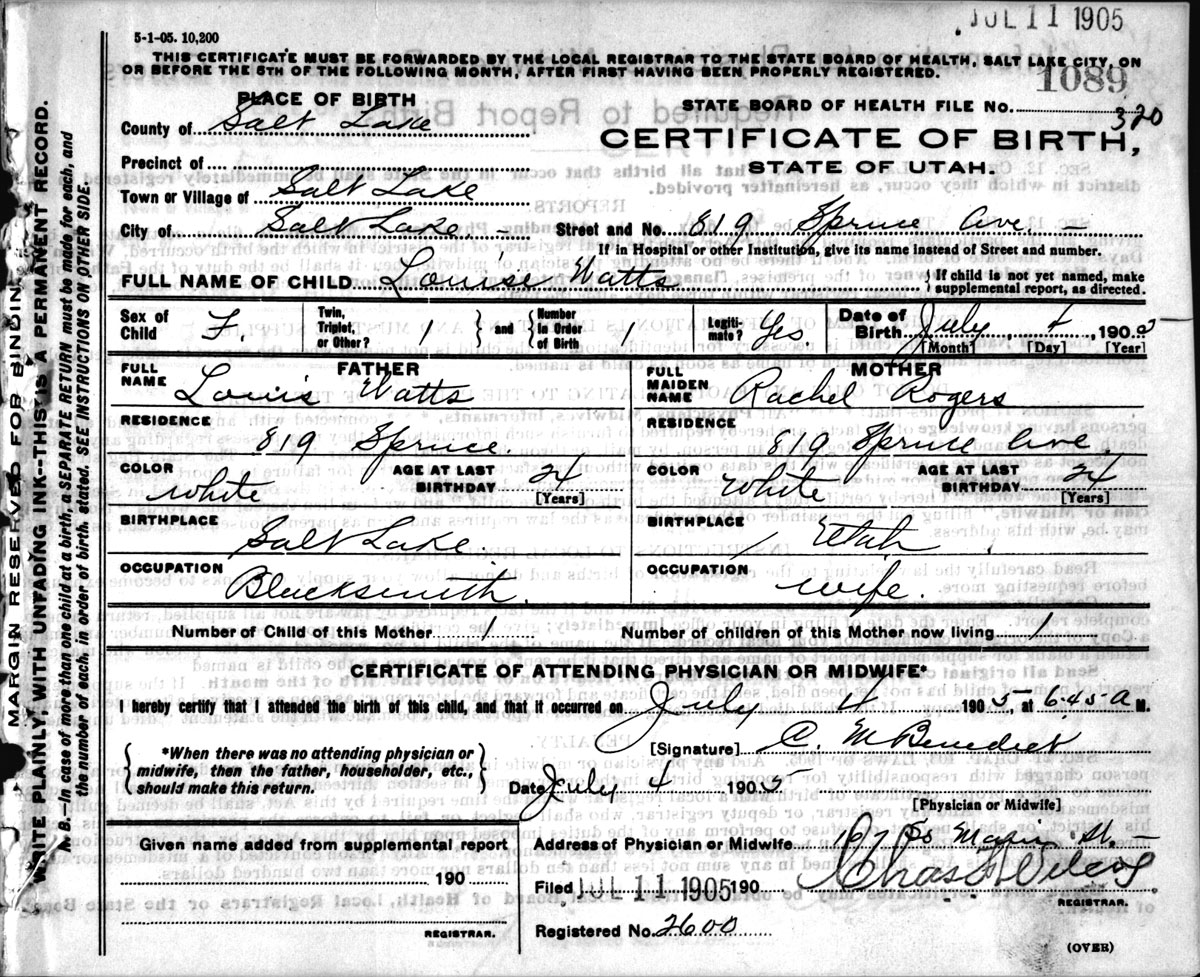 JUL 11 1905
5-1-05. 10,200
THIS CERTIFICATE MUST BE FORWARDED BY THE LOCAL REGISTRAR TO THE STATE BOARD OF HEALTH, SALT LAKE CITY, ON
OR BEFORE THE 5TH OF THE FOLLOWING MONTH, AFTER FIRST HAVING BEEN PROPERLY REGISTERED.
1089
PLACE OF BIRTH
STATE BOARD OF HEALTH FILE NO. 320
County of Salt Lake
CERTIFICATE OF BIRTH,
Precinct of
STATE OF UTAH.
Town or Village of Salt Lake
City of Salt Lake. - Street and No. 819 Spruce Ave. -
If in Hospital or other Institution, give its name instead of Street and number.
FULL NAME OF CHILD Louise Watts { If child is not yet named, make supplemental report, as directed.
Sex of Child F. Twin, Triplet, or Other? 1 } and { Number in Order of Birth 1 Legitimate? Yes. Date of Birth July 4 1905
[Month] [Day] [Year]
FATHER
FULL NAME Louis Watts
RESIDENCE
819 Spruce.
COLOR white AGE AT LAST BIRTHDAY 24
[Years]
BIRTHPLACE
Salt Lake
OCCUPATION
Blacksmith.
MOTHER
FULL MAIDEN NAME Rachel Rogers
RESIDENCE
819 Spruce Ave.
COLOR White AGE AT LAST BIRTHDAY 24
[Years]
BIRTHPLACE
Utah
OCCUPATION
wife.
Number of Child of this Mother 1 Number of children of this Mother now living 1
CERTIFICATE OF ATTENDING PHYSICIAN OR MIDWIFE*
I hereby certify that I attended the birth of this child, and that it occurred on July 4 1905, at 6.45-a M.
*When there was no attending physician or
midwife, then the father, householder, etc.,
should make this return.
[Signature] C. M Benedict
Date July 4 1905
[Physician or Midwife]
Given name added from supplemental report
190
REGISTRAR.
Address of Physician or Midwife So Main St.
Filed JUL 11 1905 190 Chas Wilcox
REGISTRAR.
Registered No. 2600
(OVER)
MARGIN RESERVED FOR BINDING
WRITE PLAINLY, WITH UNFADING INK--THIS IS A PERMANENT RECORD.
N. B.--in case of more than one child at a birth, a SEPARATE RETURN must be made for each, and
the number of each, in order of birth, stated. SEE INSTRUCTIONS ON OTHER SIDE.